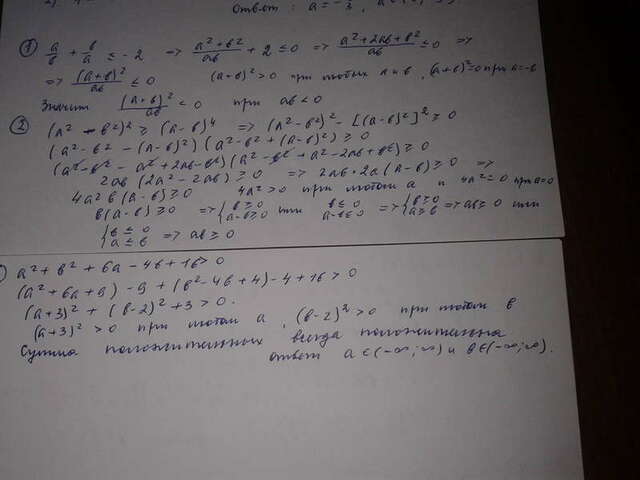 Ответ : a = -
① a/b + b/a ≤ -2 => (a²+b²)/ab + 2 ≤ 0 => (a²+2ab+b²)/ab ≤ 0 =>
=> (a+b)²/ab ≤ 0 (a+b)² > 0 при любых a и b, (a+b)²=0 при a=-b
Значит (a+b)²/ab < 0 при ab < 0
② (a² - b²)² ≥ (a-b)⁴ => (a²-b²)² - [(a-b)²]² ≥ 0
(a²-b² - (a-b)²) (a²-b² + (a-b)²) ≥ 0
(a²-b² - a² + 2ab - b²) (a² - b² + a² - 2ab + b²) ≥ 0
2ab (2a² - 2ab) ≥ 0 => 2ab · 2a (a-b) ≥ 0 =>
4a² b (a-b) ≥ 0 4a² > 0 при любом a и 4a² = 0 при a=0
b(a-b) ≥ 0 => { b ≥ 0 a-b ≥ 0 или b ≤ 0 a-b ≤ 0 => { b ≥ 0 a ≥ b => ab ≥ 0 или
{ b ≤ 0 a ≤ b => ab ≥ 0
a² + b² + 6a - 4b + 16 > 0
(a² + 6a + 9) - 9 + (b² - 4b + 4) - 4 + 16 > 0
(a+3)² + (b-2)² + 3 > 0.
(a+3)² > 0 при любом a, (b-2)² > 0 при любом b
Сумма положительных всегда положительна
ответ a ∈ (-∞; ∞) и b ∈ (-∞; ∞).